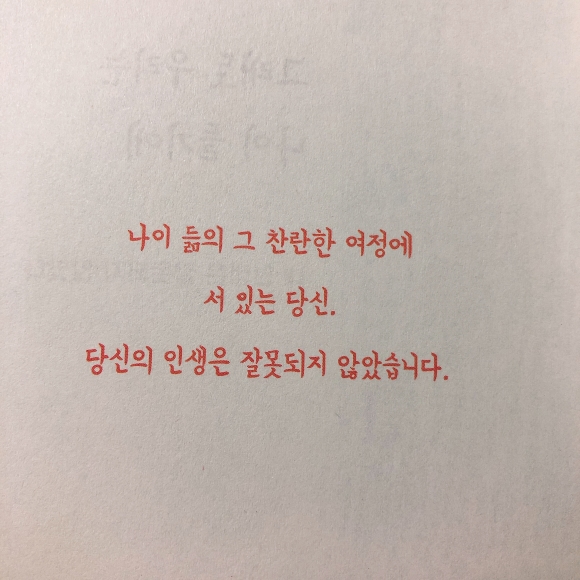 나이 듦의 그 찬란한 여정에
서 있는 당신.
당신의 인생은 잘못되지 않았습니다.